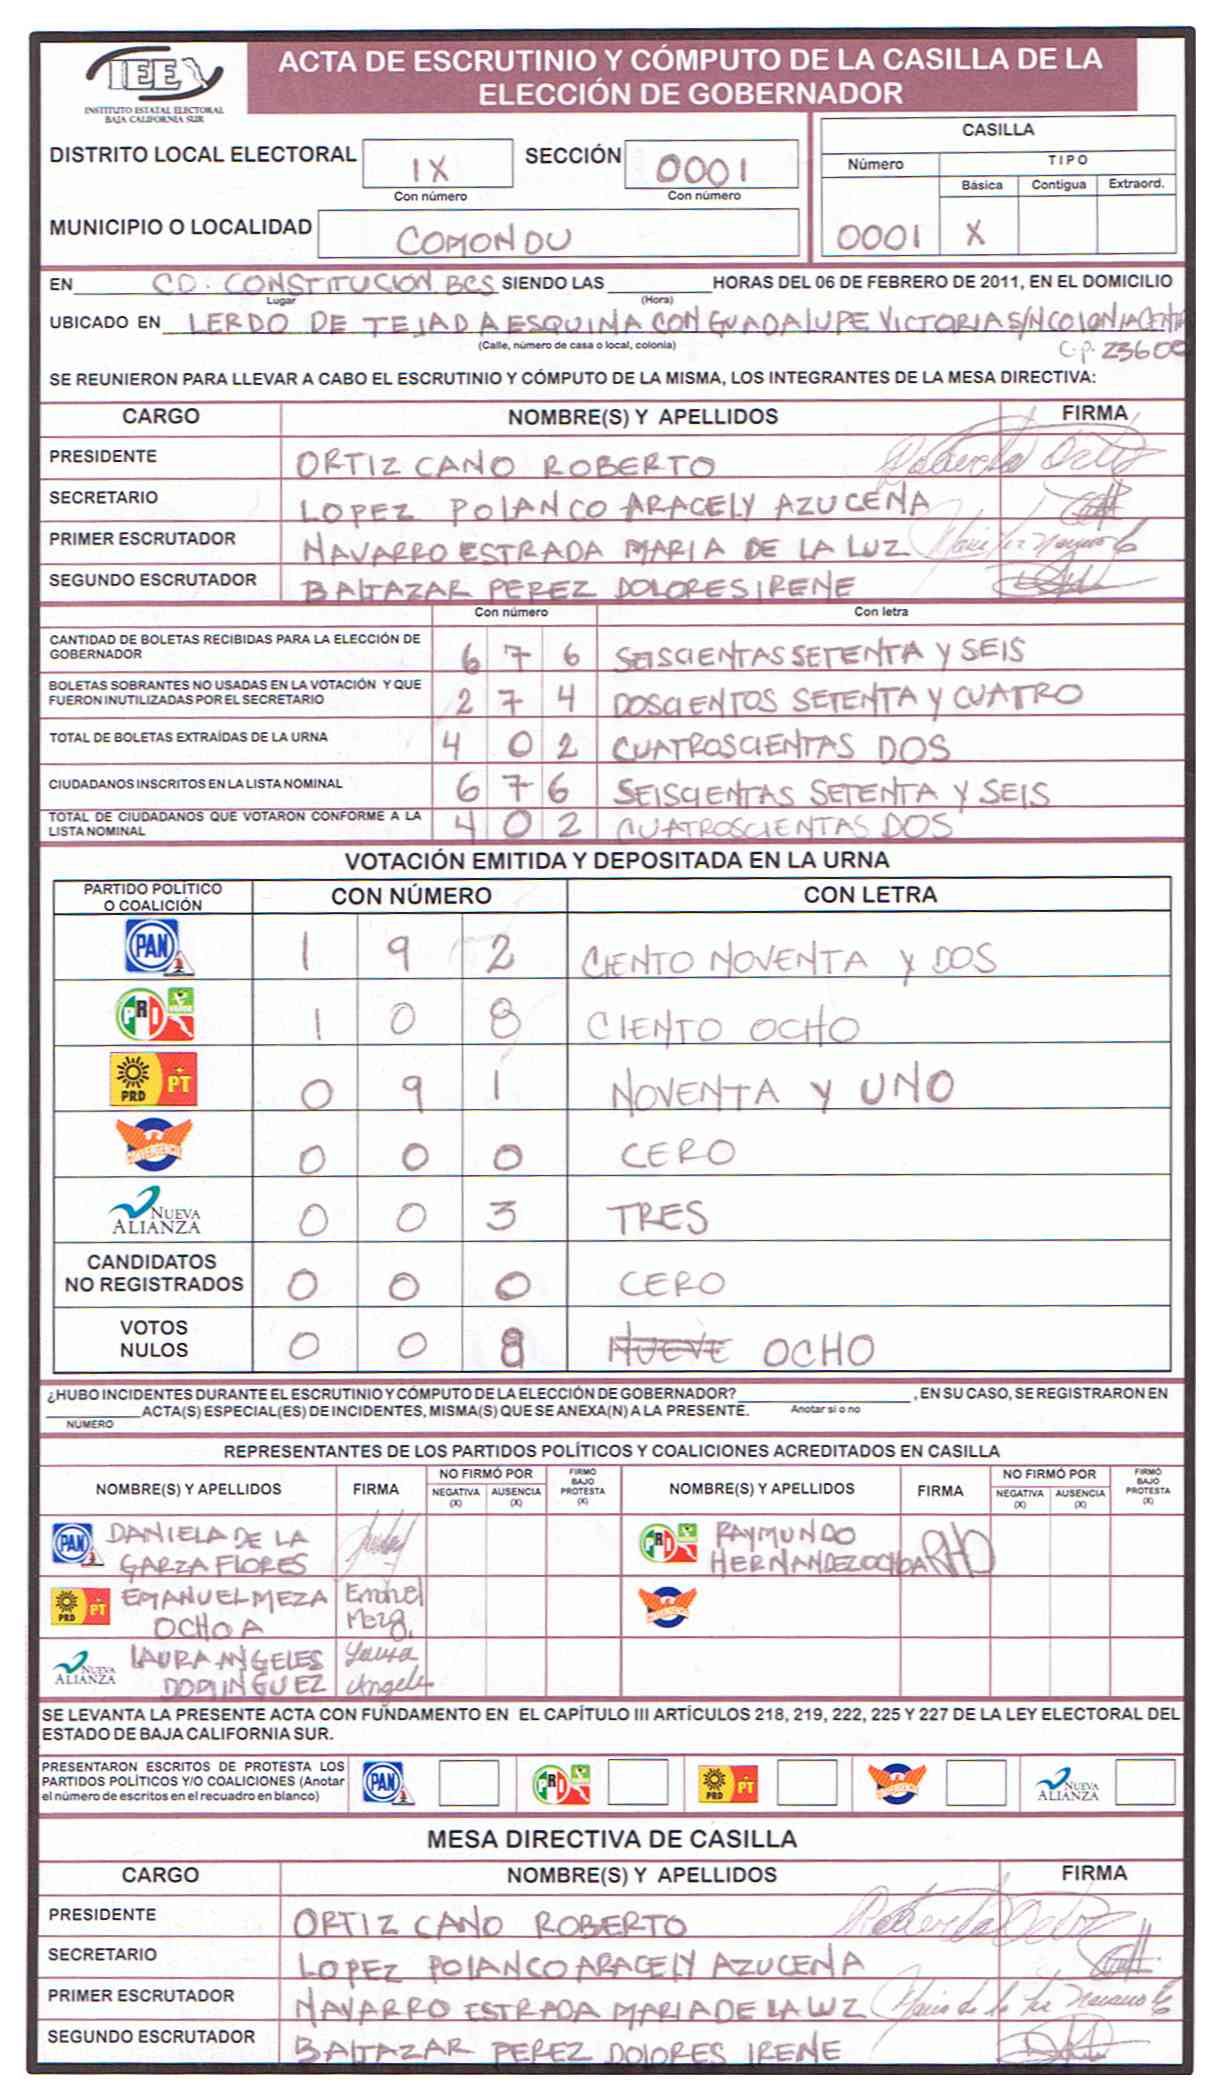 IEEX
INSTITUTO ESTATAL ELECTORAL
BAJA CALIFORNIA SUR
ACTA DE ESCRUTINIO Y CÓMPUTO DE LA CASILLA DE LA
ELECCIÓN DE GOBERNADOR
DISTRITO LOCAL ELECTORAL IX SECCIÓN 0001
Con número Con número
MUNICIPIO O LOCALIDAD COMONDU
CASILLA
Número TIPO
Básica Contigua Extraord.
0001 X
EN CD. CONSTITUCION BCS SIENDO LAS HORAS DEL 06 DE FEBRERO DE 2011, EN EL DOMICILIO
Lugar (Hora)
UBICADO EN LERDO DE TEJADA ESQUINA CON GUADALUPE VICTORIA S/N COLONIA CENTR
(Calle, número de casa o local, colonia) C.P. 23600
SE REUNIERON PARA LLEVAR A CABO EL ESCRUTINIO Y CÓMPUTO DE LA MISMA, LOS INTEGRANTES DE LA MESA DIRECTIVA:
CARGO NOMBRE(S) Y APELLIDOS FIRMA
PRESIDENTE ORTIZ CANO ROBERTO Roberto Ortiz
SECRETARIO LOPEZ POLANCO ARACELY AZUCENA
PRIMER ESCRUTADOR NAVARRO ESTRADA MARIA DE LA LUZ
SEGUNDO ESCRUTADOR BALTAZAR PEREZ DOLORES IRENE
Con número Con letra
CANTIDAD DE BOLETAS RECIBIDAS PARA LA ELECCIÓN DE
GOBERNADOR 6 7 6 SEISCIENTAS SETENTA Y SEIS
BOLETAS SOBRANTES NO USADAS EN LA VOTACIÓN Y QUE
FUERON INUTILIZADAS POR EL SECRETARIO 2 7 4 DOSCIENTOS SETENTA Y CUATRO
TOTAL DE BOLETAS EXTRAÍDAS DE LA URNA 4 0 2 CUATROSCIENTAS DOS
CIUDADANOS INSCRITOS EN LA LISTA NOMINAL 6 7 6 SEISCIENTAS SETENTA Y SEIS
TOTAL DE CIUDADANOS QUE VOTARON CONFORME A LA
LISTA NOMINAL 4 0 2 CUATROSCIENTAS DOS
VOTACIÓN EMITIDA Y DEPOSITADA EN LA URNA
PARTIDO POLÍTICO
O COALICIÓN CON NÚMERO CON LETRA
PAN 1 9 2 CIENTO NOVENTA Y DOS
PRI VERDE 1 0 8 CIENTO OCHO
PRD PT 0 9 1 NOVENTA Y UNO
CONVERGENCIA 0 0 0 CERO
NUEVA ALIANZA 0 0 3 TRES
CANDIDATOS
NO REGISTRADOS 0 0 0 CERO
VOTOS
NULOS 0 0 8 NUEVE OCHO
¿HUBO INCIDENTES DURANTE EL ESCRUTINIO Y CÓMPUTO DE LA ELECCIÓN DE GOBERNADOR? , EN SU CASO, SE REGISTRARON EN
ACTA(S) ESPECIAL(ES) DE INCIDENTES, MISMA(S) QUE SE ANEXA(N) A LA PRESENTE. Anotar si o no
NÚMERO
REPRESENTANTES DE LOS PARTIDOS POLÍTICOS Y COALICIONES ACREDITADOS EN CASILLA
NOMBRE(S) Y APELLIDOS FIRMA NO FIRMÓ POR NEGATIVA (X) AUSENCIA (X) FIRMÓ BAJO PROTESTA (X) NOMBRE(S) Y APELLIDOS FIRMA NO FIRMÓ POR NEGATIVA (X) AUSENCIA (X) FIRMÓ BAJO PROTESTA (X)
PAN DANIELA DE LA PRI VERDE RAYMUNDO
GARZA FLORES HERNANDEZ OCHOA RHO
PRD PT EMANUEL MEZA Emanuel CONVERGENCIA
OCHOA Meza.
NUEVA ALIANZA LAURA ANGELES Laura
DOMINGUEZ Angeles
SE LEVANTA LA PRESENTE ACTA CON FUNDAMENTO EN EL CAPÍTULO III ARTÍCULOS 218, 219, 222, 225 Y 227 DE LA LEY ELECTORAL DEL
ESTADO DE BAJA CALIFORNIA SUR.
PRESENTARON ESCRITOS DE PROTESTA LOS
PARTIDOS POLÍTICOS Y/O COALICIONES (Anotar
el número de escritos en el recuadro en blanco) PAN PRI VERDE PRD PT CONVERGENCIA NUEVA ALIANZA
MESA DIRECTIVA DE CASILLA
CARGO NOMBRE(S) Y APELLIDOS FIRMA
PRESIDENTE ORTIZ CANO ROBERTO Roberto Ortiz
SECRETARIO LOPEZ POLANCO ARACELY AZUCENA
PRIMER ESCRUTADOR NAVARRO ESTRADA MARIA DE LA LUZ Maria de la Luz Navarro E
SEGUNDO ESCRUTADOR BALTAZAR PEREZ DOLORES IRENE